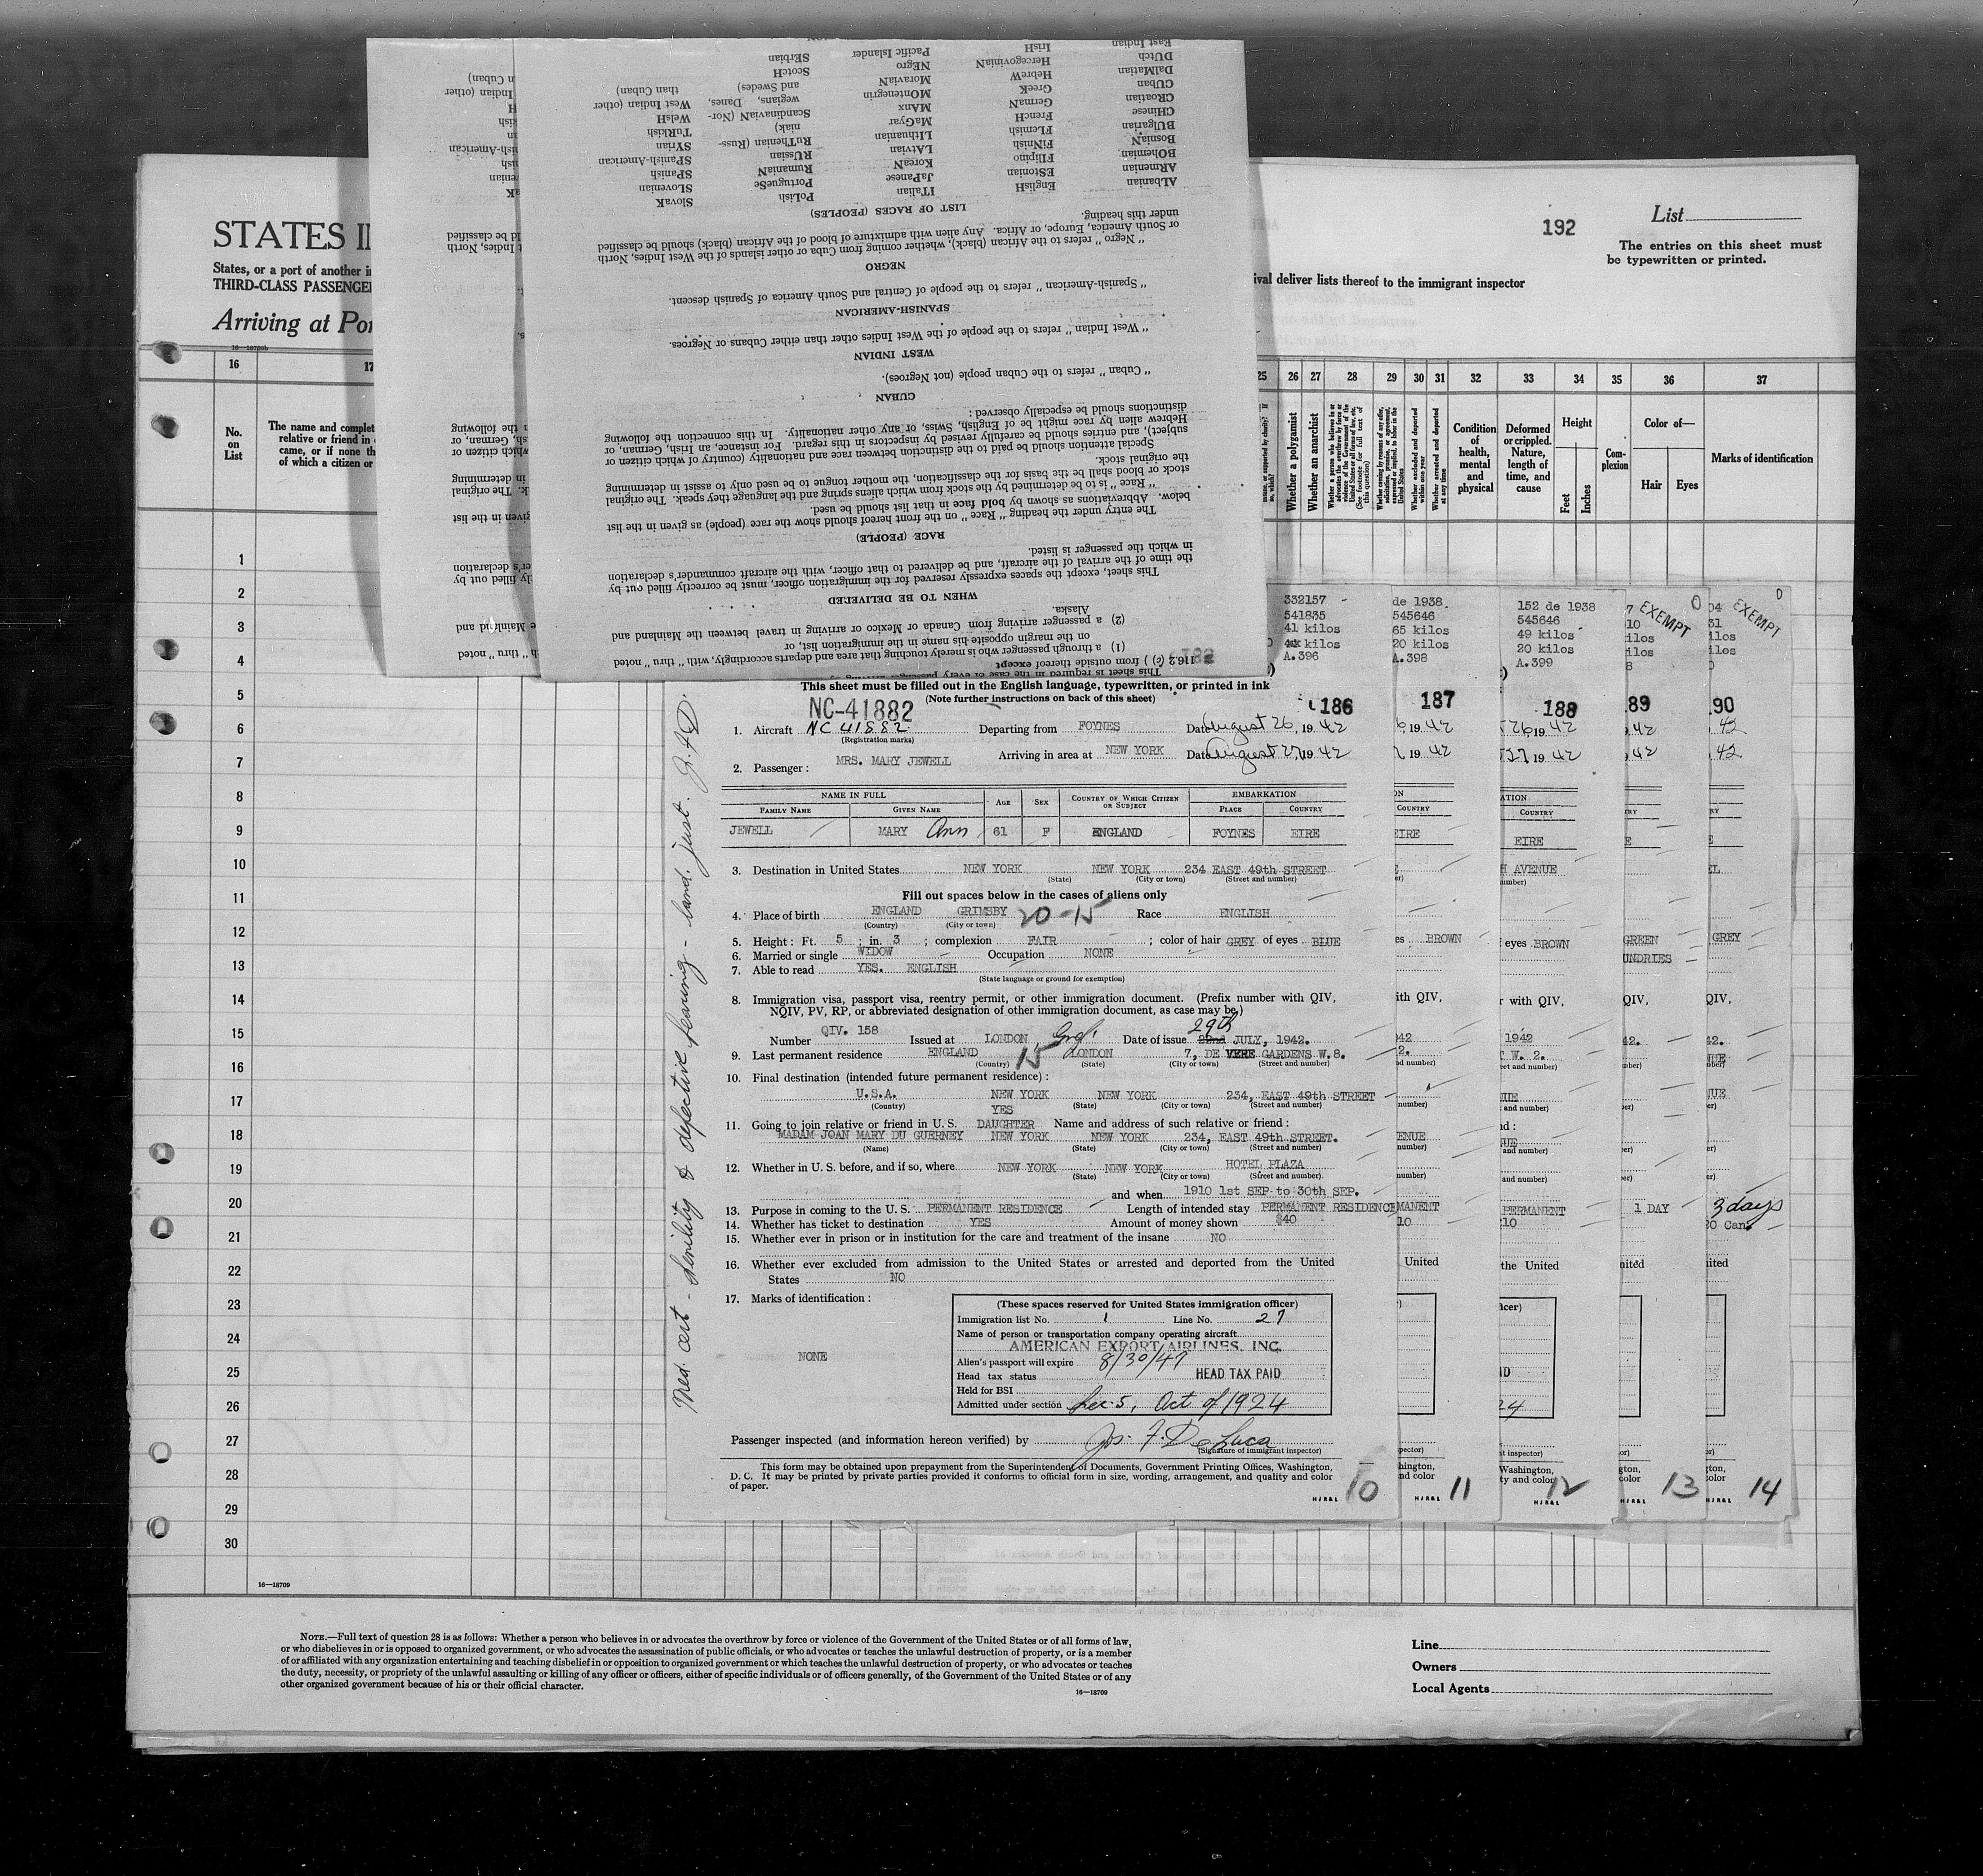 n Cuban)
Indian (other
H
kish
an
ish-American
nish
venian
aK
ld be classified
t Indies, North
n the following
sh, German, or
which citizen or
in determining
k. The original
given in the list
er's declaration
ly filled out by
e Mainland and
h "thru" noted
East Indian IrisH Pacific Islander SErbian
DUtch HercegovinIaN NEgro ScotcH
DalMatian HebreW MoraviaN and Swedes) than Cuban)
CUban GreeK MOntenegrin wegians, Danes, West Indian (other
CRoatian GermaN MAnx ScandinaviaN (Nor- WelsH
CHinese FrencH MaGyar niak) TuRkish
BUlgarian FLemish LIthuanian RuThenian (Russ- SYrian
BosniaN FiNnish LAtvian RUssian SPanish-American
BOhemian FIlipino KoreaN RumaniaN SPanish
ARmenian EStonian JaPanese PortugueSe SLovenian
ALbanian EnglisH ITalian PoLish SlovaK
LIST OF RACES (PEOPLES)
under this heading.
or South America, Europe, or Africa. Any alien with admixture of blood of the African (black) should be classified
"Negro" refers to the African (black), whether coming from Cuba or other islands of the West Indies, North
NEGRO
"Spanish-American" refers to the people of Central and South America of Spanish descent.
SPANISH-AMERICAN
"West Indian" refers to the people of the West Indies other than either Cubans or Negroes.
WEST INDIAN
"Cuban" refers to the Cuban people (not Negroes).
CUBAN
distinctions should be especially observed:
Hebrew alien by race might be of English, Swiss, or any other nationality. In this connection the following
subject), and entries should be carefully revised by inspectors in this regard. For instance, an Irish, German, or
Special attention should be paid to the distinction between race and nationality (country of which citizen or
the original stock.
stock or blood shall be the basis for the classification, the mother tongue to be used only to assist in determining
"Race" is to be determined by the stock from which aliens spring and the language they speak. The original
below. Abbreviations as shown by bold face in that list should be used.
The entry under the heading "Race" on the front hereof should show the race (people) as given in the list
RACE (PEOPLE)
in which the passenger is listed.
the time of the arrival of the aircraft, and be delivered to that officer, with the aircraft commander's declaration
This sheet, except the spaces expressly reserved for the immigration officer, must be correctly filled out by
WHEN TO BE DELIVERED
Alaska.
(2) a passenger arriving from Canada or Mexico or arriving in travel between the Mainland and
on the margin opposite his name in the immigration list, or
(1) a through passenger who is merely touching that area and departs accordingly, with "thru" noted
116.2 (c) ) from outside thereof except
This sheet is required in the case of every passenger arriving by
STATES I
192
List
The entries on this sheet must
be typewritten or printed.
States, or a port of another i
THIRD-CLASS PASSENGE
ival deliver lists thereof to the immigrant inspector
Arriving at Por
16—18709b
16 17 25 26 27 28 29 30 31 32 33 34 35 36 37
No.
on
List
The name and complet
relative or friend in
came, or if none th
of which a citizen or
Whether a polygamist
Whether an anarchist
Whether a person who believes in or advocates the overthrow by force or violence of the Government of the United States or all forms of law, etc. (See footnote for full text of this question)
Whether coming by reason of any offer, solicitation, promise, or agreement, expressed or implied, to labor in the United States
Whether excluded and deported within one year
Whether arrested and deported at any time
Condition of health, mental and physical
Deformed or crippled. Nature, length of time, and cause
Height
Feet
Inches
Com-
plexion
Color of—
Hair Eyes
Marks of identification
1
2
3
4
5
6
7
8
9
10
11
12
13
14
15
16
17
18
19
20
21
22
23
24
25
26
27
28
29
30
16—18709
332157
541835
41 kilos
A.396
de 1938.
545646
65 kilos
20 kilos
A.398
152 de 1938
545646
49 kilos
20 kilos
A.399
EXEMPT
EXEMPT
This sheet must be filled out in the English language, typewritten, or printed in ink
(Note further instructions on back of this sheet)
NC-41882
186 187 188 89 90
1. Aircraft NC 41882 Departing from FOYNES Date August 26, 1942
(Registration marks)
Arriving in area at NEW YORK Date August 27, 1942
2. Passenger: MRS. MARY JEWELL
NAME IN FULL AGE SEX COUNTRY OF WHICH CITIZEN OR SUBJECT EMBARKATION
FAMILY NAME GIVEN NAME PLACE COUNTRY
JEWELL MARY Ann 61 F ENGLAND FOYNES EIRE
3. Destination in United States NEW YORK NEW YORK 234 EAST 49th STREET
(State) (City or town) (Street and number)
Fill out spaces below in the cases of aliens only
4. Place of birth ENGLAND GRIMSBY 20-15 Race ENGLISH
(Country) (City or town)
5. Height: Ft. 5; in. 3; complexion FAIR; color of hair GREY of eyes BLUE
6. Married or single WIDOW Occupation NONE
7. Able to read YES. ENGLISH
(State language or ground for exemption)
8. Immigration visa, passport visa, reentry permit, or other immigration document. (Prefix number with QIV,
NQIV, PV, RP, or abbreviated designation of other immigration document, as case may be,)
29th
Number QIV. 158 Issued at LONDON, Eng. Date of issue 22nd JULY, 1942.
9. Last permanent residence ENGLAND 15 LONDON 7, DE VERE GARDENS W.8.
(Country) (State) (City or town) (Street and number)
10. Final destination (intended future permanent residence):
U.S.A. NEW YORK NEW YORK 234, EAST 49th STREET
(Country) (State) (City or town) (Street and number)
YES
11. Going to join relative or friend in U. S. DAUGHTER Name and address of such relative or friend:
MADAM JOAN MARY DU GUERNEY NEW YORK NEW YORK 234, EAST 49th STREET.
(Name) (State) (City or town) (Street and number)
12. Whether in U. S. before, and if so, where NEW YORK NEW YORK HOTEL PLAZA
(State) (City or town) (Street and number)
and when 1910 1st SEP to 30th SEP.
13. Purpose in coming to the U. S. PERMANENT RESIDENCE Length of intended stay PERMANENT RESIDENCE
14. Whether has ticket to destination YES Amount of money shown $40
15. Whether ever in prison or in institution for the care and treatment of the insane NO
16. Whether ever excluded from admission to the United States or arrested and deported from the United
States NO
17. Marks of identification:
NONE
(These spaces reserved for United States immigration officer)
Immigration list No. 1 Line No. 27
Name of person or transportation company operating aircraft
AMERICAN EXPORT AIRLINES, INC.
Alien's passport will expire 8/30/47
Head tax status HEAD TAX PAID
Held for BSI
Admitted under section Sec 5, Act of 1924
Passenger inspected (and information hereon verified) by Jos. F. De Luca
(Signature of immigrant inspector)
This form may be obtained upon prepayment from the Superintendent of Documents, Government Printing Offices, Washington,
D. C. It may be printed by private parties provided it conforms to official form in size, wording, arrangement, and quality and color
of paper.
HJR&L 10
Med. cert - senility & defective hearing - land. just.
COUNTRY
EIRE
BROWN
ith QIV,
United
HJR&L 11
COUNTRY
EIRE
H AVENUE
eyes BROWN
r with QIV,
1942
PERMANENT
the United
Washington,
HJR&L 12
GREEN
UNDRIES
QIV,
1 DAY
HJR&L 13
GREY
QIV,
3 days
HJR&L 14
NOTE.—Full text of question 28 is as follows: Whether a person who believes in or advocates the overthrow by force or violence of the Government of the United States or of all forms of law,
or who disbelieves in or is opposed to organized government, or who advocates the assassination of public officials, or who advocates or teaches the unlawful destruction of property, or is a member
of or affiliated with any organization entertaining and teaching disbelief in or opposition to organized government or which teaches the unlawful destruction of property, or who advocates or teaches
the duty, necessity, or propriety of the unlawful assaulting or killing of any officer or officers, either of specific individuals or of officers generally, of the Government of the United States or of any
other organized government because of his or their official character.
16—18709
Line
Owners
Local Agents